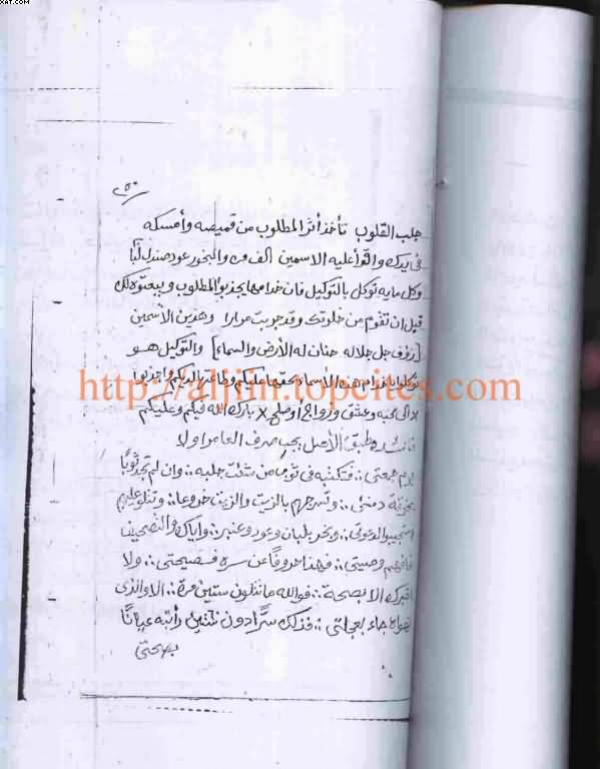 XAT.COM
٢٥٠
جلب القلوب تأخذ أثر المطلوب من قميصه وأمسكه
فى يدك واتلو عليه الاسمين الف مره والبخور عود صندل لبان
وكل مايه توكل بالتوكيل فان خدامها يجذبو المطلوب ويبعتوه لك
قبل ان تقوم من خلوتك وقد جربت مرارا وهذين الأسمين
[رؤف جل جلاله حنان له الأرض والسماء] والتوكيل هو
توكلوا يا خدام هذه الأسماء بحقها عليكم وطاعتها لديكم واجذبوا
الى محبه وعشق وزواج او صلح x بارك الله فيكم وعليكم
http://aljiin.topcites.com
طبق الأصل يجب صرف العامر اولا
فتكتبه فى ثوب من شئت جلبه .:. وان لم تجد ثوبا
بخرقة .:. وتسرجهم بالزيت والزيت خروعا .:. وتتلو عليهم
.:. وبخر بلبان وعود وعنبر .:. واياك والتصحيف
فافهم وصيتى .:. فهذا حروفا عن سره فصيحتى .:. ولا
.:. فوالله ما تتلون ستين مرة .:. الا والذى
تهواه جاء بعجلتى .:. فذلك سر دون رأيته عيانا
بصحتى